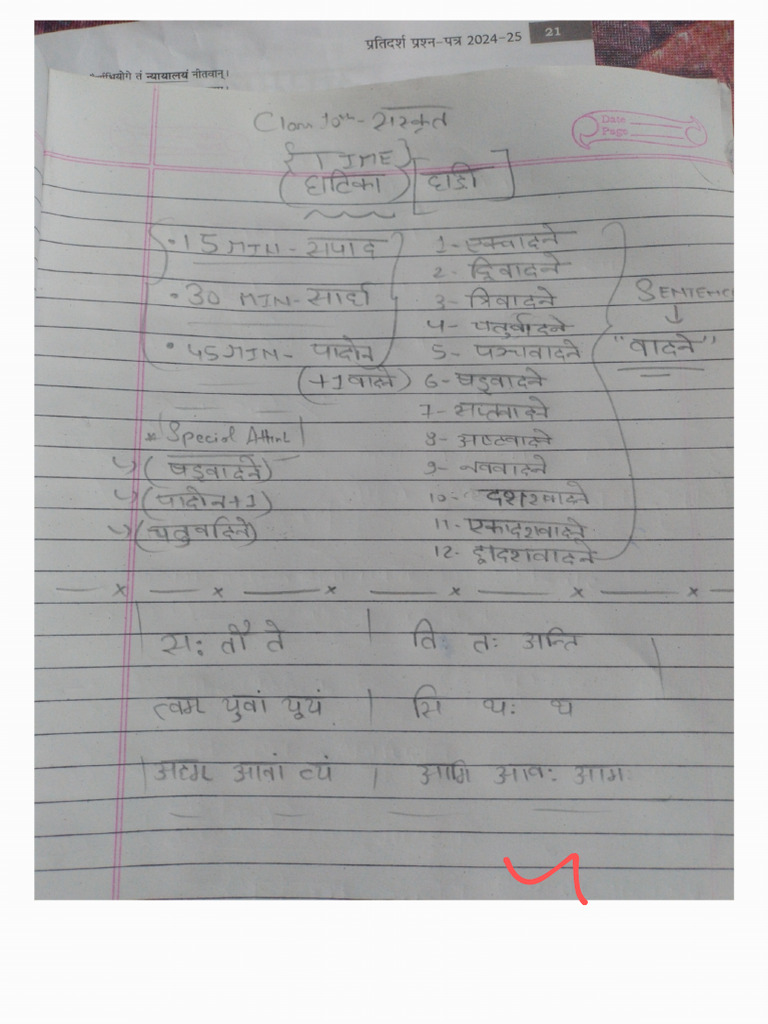 प्रतिदर्श प्रश्न-पत्र 2024-25 21
तं न्यायालयं नीतवान्।
Class 10th - संस्कृत
Date
Page
{TIME}
(घटिका) [घड़ी]
• 15 MIN - सपाद
• 30 MIN - सार्ध
• 45 MIN - पादोन
(+1 वादने)
* Special Attent
(षड्वादने)
(पादोन+1)
(चतुर्वादने)
1- एकवादने
2- द्विवादने
3- त्रिवादने
4- चतुर्वादने
5- पञ्चवादने
6- षड्वादने
7- सप्तवादने
8- अष्टवादने
9- नववादने
10- दशवादने
11- एकादशवादने
12- द्वादशवादने
SENTENC
↓
"वादने"
सः तौ ते | ति तः अन्ति
त्वम युवां यूयं | सि थः थ
अहम आवां वयं | आमि आवः आमः